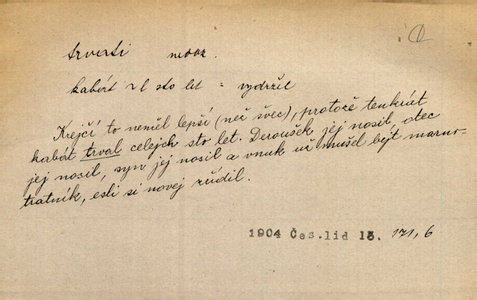 trvati nedok.
kabát ~l sto let = vydržel
Krejčí to neměl lepší (než švec), protože tenkrát
kabát trval celejch sto let. Děroušek jej nosil, otec
jej nosil, syn jej nosil a vnuk už mušel bejt marno-
tratník, esli si novej zřídil.
1904 Čes.lid 13. 171, 6